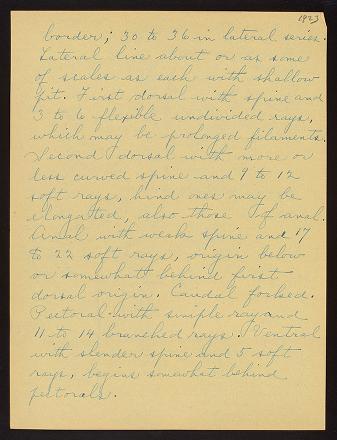 1923
border; 30 to 36 in lateral series.
Lateral line about or as some
of scales as each with shallow
pit. First dorsal with spine and
3 to 6 flexible undivided rays,
which may be prolonged filaments.
Second dorsal with more or
less curved spine and 9 to 12
soft rays, hind ones may be
elongated, also those of anal.
Anal with weak spine and 17
to 22 soft rays, origin below
or somewhat behind first
dorsal origin. Caudal forked.
Pectoral with simple ray and
11 to 14 branched rays. Ventral
with slender spine and 5 soft
rays, begins somewhat behind
pectorals.